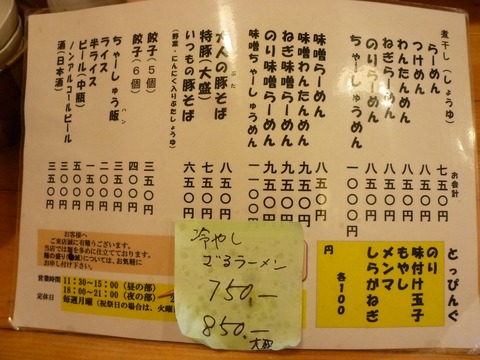 煮干し(しょうゆ)
お会計
らーめん 七五〇円
つけめん 八五〇円
わんたんめん 八五〇円
ねぎらーめん 八五〇円
のりらーめん 八五〇円
ちゃーしゅうめん 一〇〇〇円
味噌らーめん 八五〇円
味噌わんたんめん 九五〇円
ねぎ味噌らーめん 九五〇円
のり味噌らーめん 九五〇円
味噌ちゃーしゅうめん 一一〇〇円
の豚そば 八五〇円
特豚(大盛) 七五〇円
いつもの豚そば 六五〇円
(野菜・にんにく入りぶたしょうゆ)
餃子(5個) 三五〇円
餃子(6個) 四〇〇円
ちゃーしゅう飯 三五〇円
ライス 二〇〇円
半ライス 一五〇円
ビール(中瓶) 五五〇円
ノンアルコールビール 三五〇円
酒(日本酒) 三五〇円
とっぴんぐ
のり
味付け玉子
もやし
メンマ
しらがねぎ
各100円
お客様へ
ご来店誠に有難うございます。
当店では麺を多めに仕立てております。
麺の盛り(減)については、お気軽に
お申し付け下さい。
営業時間 11:30~15:00 (昼の部)
18:00~21:00 (夜の部)
定休日 毎週月曜(祝祭日の場合は、火曜
冷やし
ざるラーメン
750.-
850.-
大盛